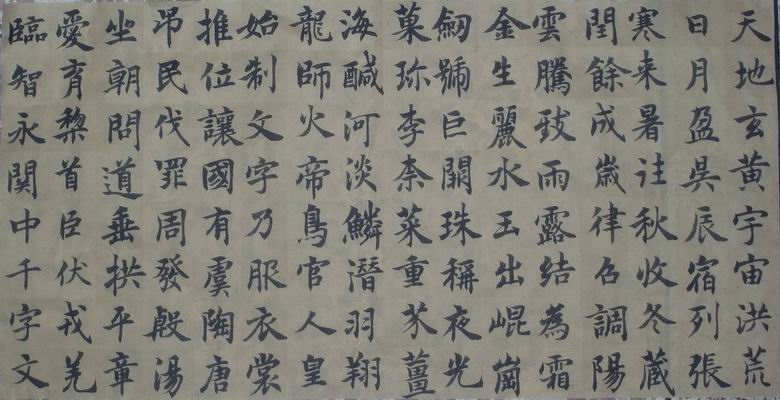 天地玄黄宇宙洪荒
日月盈昃辰宿列張
寒来暑往秋收冬蔵
閏餘成歲律召調陽
雲騰致雨露結為霜
金生麗水玉出崐崗
劒號巨闕珠稱夜光
菓珎李柰菜重芥薑
海醎河淡鱗潛羽翔
龍師火帝鳥官人皇
始制文字乃服衣裳
推位讓國有虞陶唐
吊民伐罪周發殷湯
坐朝問道垂拱平章
愛育黎首臣伏戎羌
臨智永関中千字文